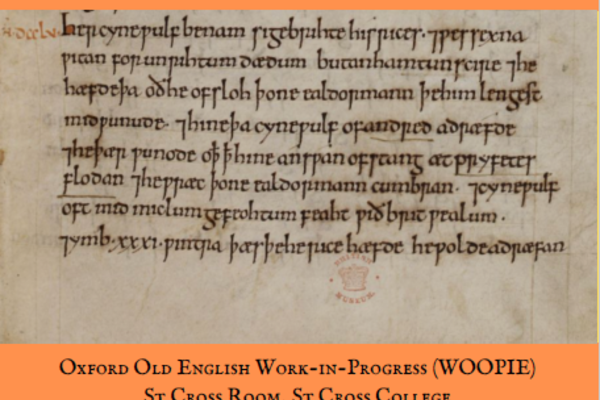 Her cyneƿulf benam sigebrihte his rices. ⁊ ƿessexna
ƿitan for unrihtum dædum butan hamtunscire ⁊ he
hæfde þa oð he ofsloh þone ealdormann þe him lengest
mid ƿunude. ⁊ hine þa cyneƿulf of andred adræfde
⁊ he þær ƿunode oþ ꝥ hine an sƿan ofstang æt pryfetes
flodan ⁊ he ƿræc þone ealdormann cumbran. ⁊ cyneƿulf
oft mid miclum gefeohtum feaht ƿið brut ƿealum.
⁊ ymb .xxxi. ƿintra þæs þe he rice hæfde he ƿolde adræfan
MUSEUM
Oxford Old English Work-in-Progress (WOOPIE)
St Cross Room, St Cross College